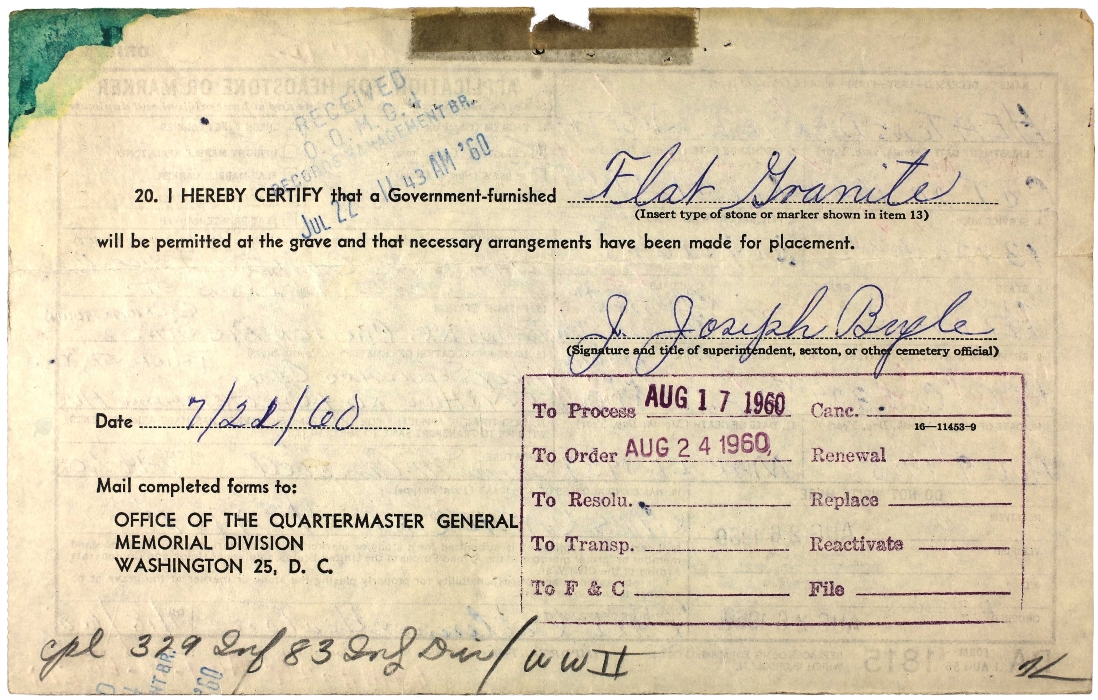 RECEIVED
O. Q. M. G.
RECORDS MANAGEMENT BR.
JUL 22 11 43 AM '60
20. I HEREBY CERTIFY that a Government-furnished Flat Granite
(Insert type of stone or marker shown in item 13)
will be permitted at the grave and that necessary arrangements have been made for placement.
J. Joseph Bugle
(Signature and title of superintendent, sexton, or other cemetery official)
To Process AUG 17 1960 Canc.
16—11453-9
Date 7/21/60
To Order AUG 24 1960 Renewal
Mail completed forms to:
To Resolu. Replace
OFFICE OF THE QUARTERMASTER GENERAL
MEMORIAL DIVISION
To Transp. Reactivate
WASHINGTON 25, D. C.
To F & C File
cpl 329 Inf 83 Inf Div / WW II